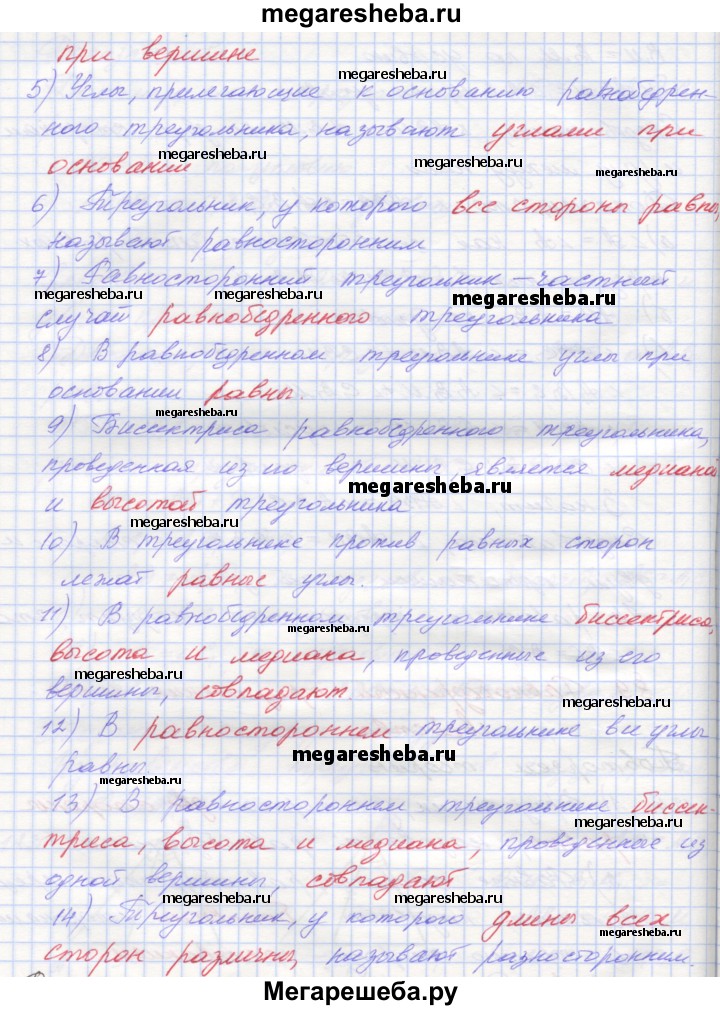 megaresheba.ru
при вершине
megaresheba.ru
5) Углы, прилегающие к основанию равнобедрен-
ного треугольника, называют углами при
megaresheba.ru megaresheba.ru
основании
6) Треугольник, у которого все стороны равны,
называют равносторонним
7) Равносторонний треугольник – частный
megaresheba.ru megaresheba.ru megaresheba.ru
случай равнобедренного треугольника
8) В равнобедренном треугольнике углы при
основании равны.
megaresheba.ru megaresheba.ru
9) Биссектриса равнобедренного треугольника,
проведенная из его вершины, является медианой
megaresheba.ru
и высотой треугольника
megaresheba.ru megaresheba.ru
10) В треугольнике против равных сторон
лежат равные углы.
11) В равнобедренном треугольнике биссектриса,
megaresheba.ru
высота и медиана, проведенные из его
megaresheba.ru megaresheba.ru
вершины, совпадают.
12) В равностороннем треугольнике все углы
megaresheba.ru
равны
megaresheba.ru
13) В равностороннем треугольнике биссек-
megaresheba.ru
триса, высота и медиана, проведенные из
одной вершины, совпадают
megaresheba.ru megaresheba.ru
14) Треугольник, у которого длины всех
megaresheba.ru
сторон различны, называют разносторонним.
megaresheba.ru megaresheba.ru
Мегарешеба.ру